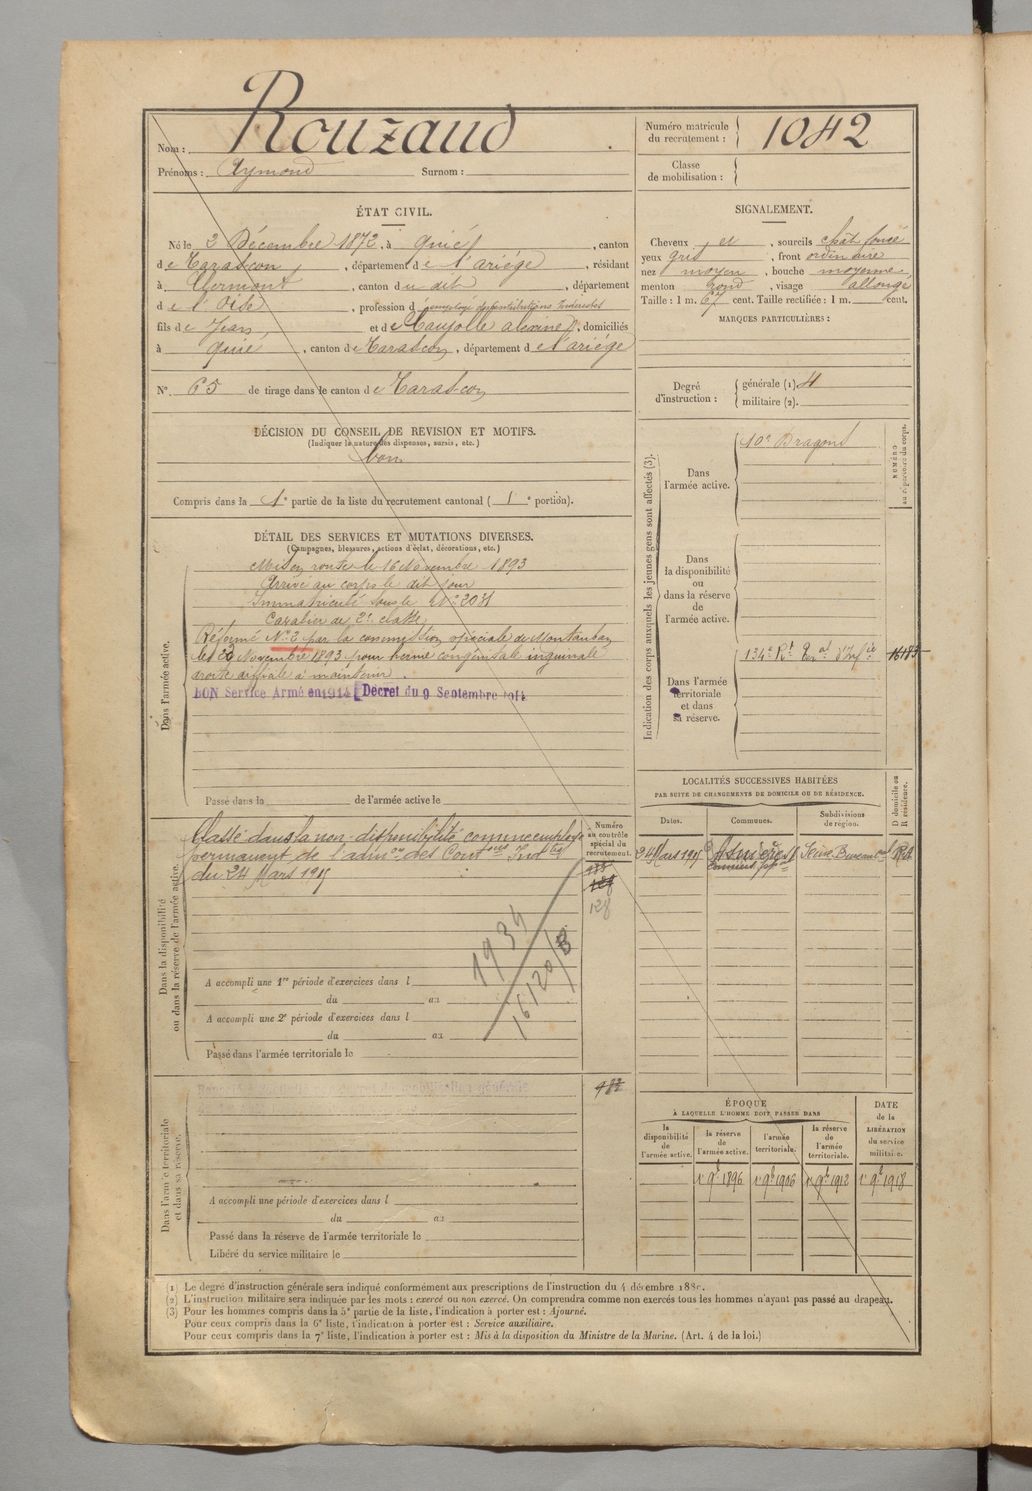 Nom : Rouzaud
Prénoms : Aymond Surnom :
Numéro matricule du recrutement : 1042
Classe de mobilisation :
ÉTAT CIVIL.
Né le 2 Décembre 1872, à Quié, canton
de Tarascon, département de l'ariège, résidant
à Clermont, canton du dit, département
de l'Oise, profession d'employé des contributions Indirectes
fils de Jean et de Caujolle, domiciliés
à Quié, canton de Tarascon, département de l'ariège
N° 65 de tirage dans le canton de Tarascon
SIGNALEMENT.
Cheveux et, sourcils chât foncé
yeux gris, front ordinaire
nez moyen, bouche moyenne
menton rond, visage allongé
Taille : 1 m. 67 cent. Taille rectifiée : 1 m. cent.
MARQUES PARTICULIÈRES :
Degré d'instruction : générale (1). militaire (2).
DÉCISION DU CONSEIL DE REVISION ET MOTIFS.
(Indiquer la nature des dispenses, sursis, etc.)
bon
Compris dans la 1e partie de la liste du recrutement cantonal ( 1e portion).
DÉTAIL DES SERVICES ET MUTATIONS DIVERSES.
(Campagnes, blessures, actions d'éclat, décorations, etc.)
Dans l'armée active.
Mis en route le 16 Novembre 1893
Arrivé au corps le dit jour
Immatriculé sous le N°
Cavalier de 2e classe
Réformé N° 2 par la commission spéciale de Montauban
le 29 Novembre 1893 pour hernie congénitale inguinale
droite difficile à maintenir.
BON Service Armé en 1914 Décret du 9 Septembre 1914
Passé dans la de l'armée active le
Indication des corps auxquels les jeunes gens sont affectés (3).
NUMÉRO au répertoire du corps.
Dans l'armée active.
10e Dragons
Dans la disponibilité ou dans la réserve de l'armée active.
Dans l'armée territoriale et dans sa réserve.
134e Rt Terral d'Infie 16183
Dans la disponibilité ou dans la réserve de l'armée active.
Numéro au contrôle spécial du recrutement.
Classé dans la non-disponibilité comme employé
permanent de l'admon des Contons Indtes
du 24 Mars 1915
128
1934
16120/B
A accompli une 1re période d'exercices dans l
du au
A accompli une 2e période d'exercices dans l
du au
Passé dans l'armée territoriale le
LOCALITÉS SUCCESSIVES HABITÉES
PAR SUITE DE CHANGEMENTS DE DOMICILE OU DE RÉSIDENCE.
Dates. Communes. Subdivisions de région. D domicile ou R résidence.
24 Mars 1915 Asnières Seine
Dans l'armée territoriale et dans sa réserve.
A accompli une période d'exercices dans l
du au
Passé dans la réserve de l'armée territoriale le
Libéré du service militaire le
ÉPOQUE
À LAQUELLE L'HOMME DOIT PASSER DANS
DATE de la LIBÉRATION du service militaire.
la disponibilité de l'armée active.
la réserve de l'armée active.
l'armée territoriale.
la réserve de l'armée territoriale.
1er 9bre 1896 1er 9bre 1906 1er 9bre 1912 1er 9bre 1918
(1) Le degré d'instruction générale sera indiqué conformément aux prescriptions de l'instruction du 4 décembre 1889.
(2) L'instruction militaire sera indiquée par les mots : exercé ou non exercé. On comprendra comme non exercés tous les hommes n'ayant pas passé au drapeau.
(3) Pour les hommes compris dans la 5e partie de la liste, l'indication à porter est : Ajourné.
Pour ceux compris dans la 6e liste, l'indication à porter est : Service auxiliaire.
Pour ceux compris dans la 7e liste, l'indication à porter est : Mis à la disposition du Ministre de la Marine. (Art. 4 de la loi.)